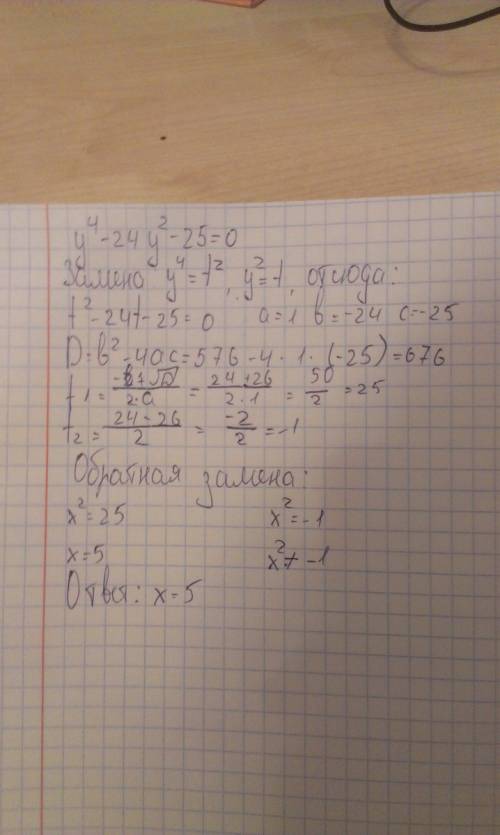 y⁴-24y²-25=0
Замена y⁴=t², y²=t, отсюда:
t²-24t-25=0 a=1 в=-24 c=-25
D=в²-4ac=576-4·1·(-25)=676
t₁=(-в+√D)/(2·a)=(24+26)/(2·1)=50/2=25
t₂=(24-26)/2=-2/2=-1
Обратная замена:
x²=25 x²=-1
x=5 x²≠-1
Ответ: x=5